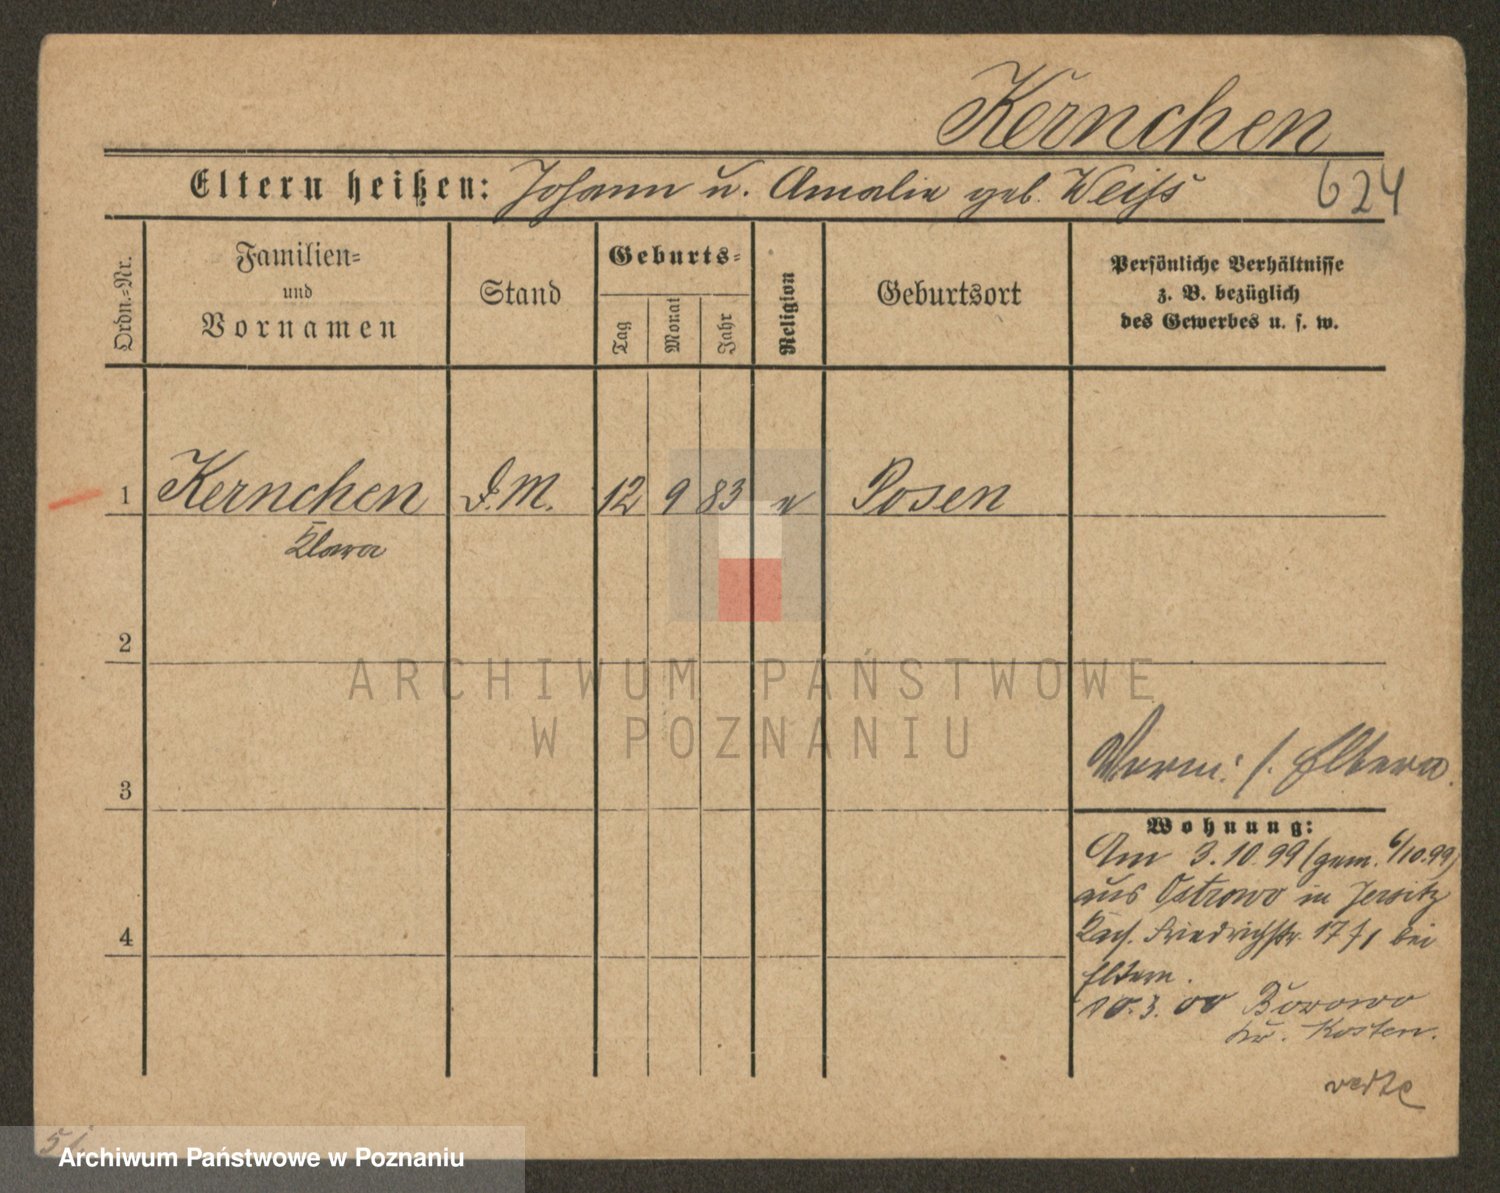 Kernchen
Eltern heißen: Johann u. Amalie geb. Weiss
624
Ordn.-Nr.
Familien-
und
Vornamen
Stand
Geburts-
Tag
Monat
Jahr
Religion
Geburtsort
Persönliche Verhältnisse
z. B. bezüglich
des Gewerbes u. s. w.
1 Kernchen D.M. 12 9 83 Posen
Klara
2
ARCHIWUM PAŃSTWOWE
W POZNANIU
3
s. Eltern
Wohnung:
Am 3.10.99 (gem. 6/10.99)
aus Ostrowo in Jersitz
Friedrichstr. 17 bei
Eltern.
4
10.3.00 Borowo
Kr. Kosten.
verte
51
Archiwum Państwowe w Poznaniu